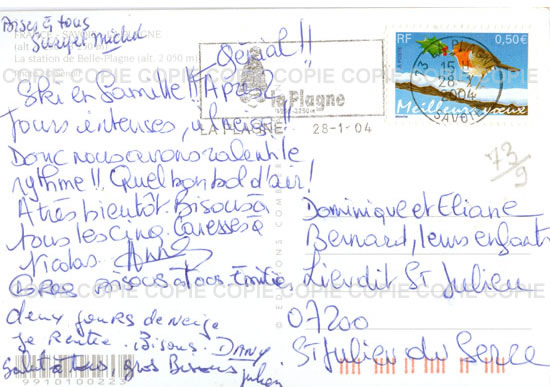 Bises à tous
Michel
FRANCE - SAVOIE
La station de Belle-Plagne (alt. 2 090 m)
Génial !!
Ski en famille !! Après 2
jours intenses,
Donc nous avons ralenti le
rythme !! Quel bon bol d'air !
A très bientôt. Bisous à
tous les cinq. Caresses à
Nicolas.
Gros Bisous à Tous Emilie
deux jours de neige
je rentre. Bisous. DANY
Salut à tous, gros Bisous
Julien
9910100223
la Plagne
LA PLAGNE
28-1-04
RF
0,50€
Meilleurs vœux
73
15 H
28-1
2004
SAVOIE
73/9
Dominique et Eliane
Bernard, leurs enfants
Lieudit St Julien
07200
St Julien du Serre
© EDITIONS
COPIE COPIE COPIE COPIE COPIE COPIE COPIE